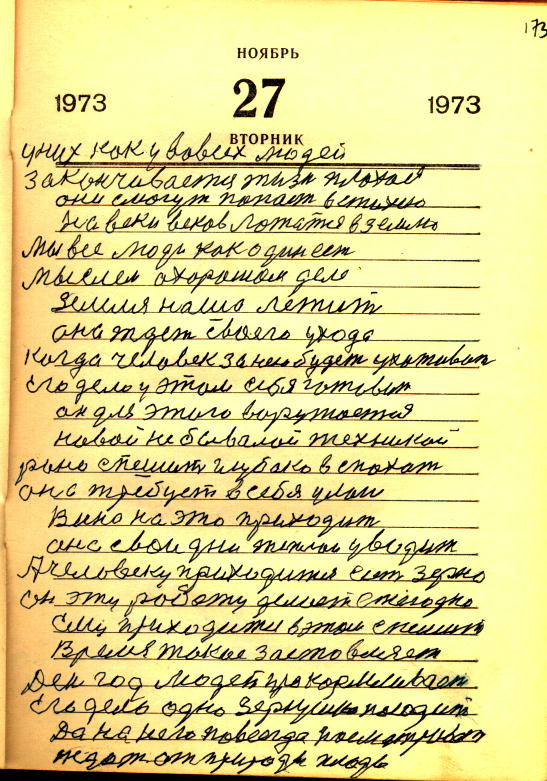 173
НОЯБРЬ
1973 27 1973
ВТОРНИК
у них как у вовсех людей
Заканчивается жизн плохая
они смогут попаст в стихию
На веки веков ложатся в землю
Мы все люди как один ест
мыслем о хорошом деле
Земля наша лежит
она ждет своего ухода
когда человек за нею будет ухаживат
его дело у этом себя готовит
он для этого воружается
новой небывалой техникой
рано спешит глубоко вспохат
она требует в себя
на это приходит
она свои дни теплом уводит
А человеку приходится сият зерно
он эту работу делает ежегодно
Ему приходится в этом спешит
Время такое заставляет
Ден год людей прокармливает
его дело одно зернушко посадит
Да на него повсегда посматриват
ждат от природы плоды